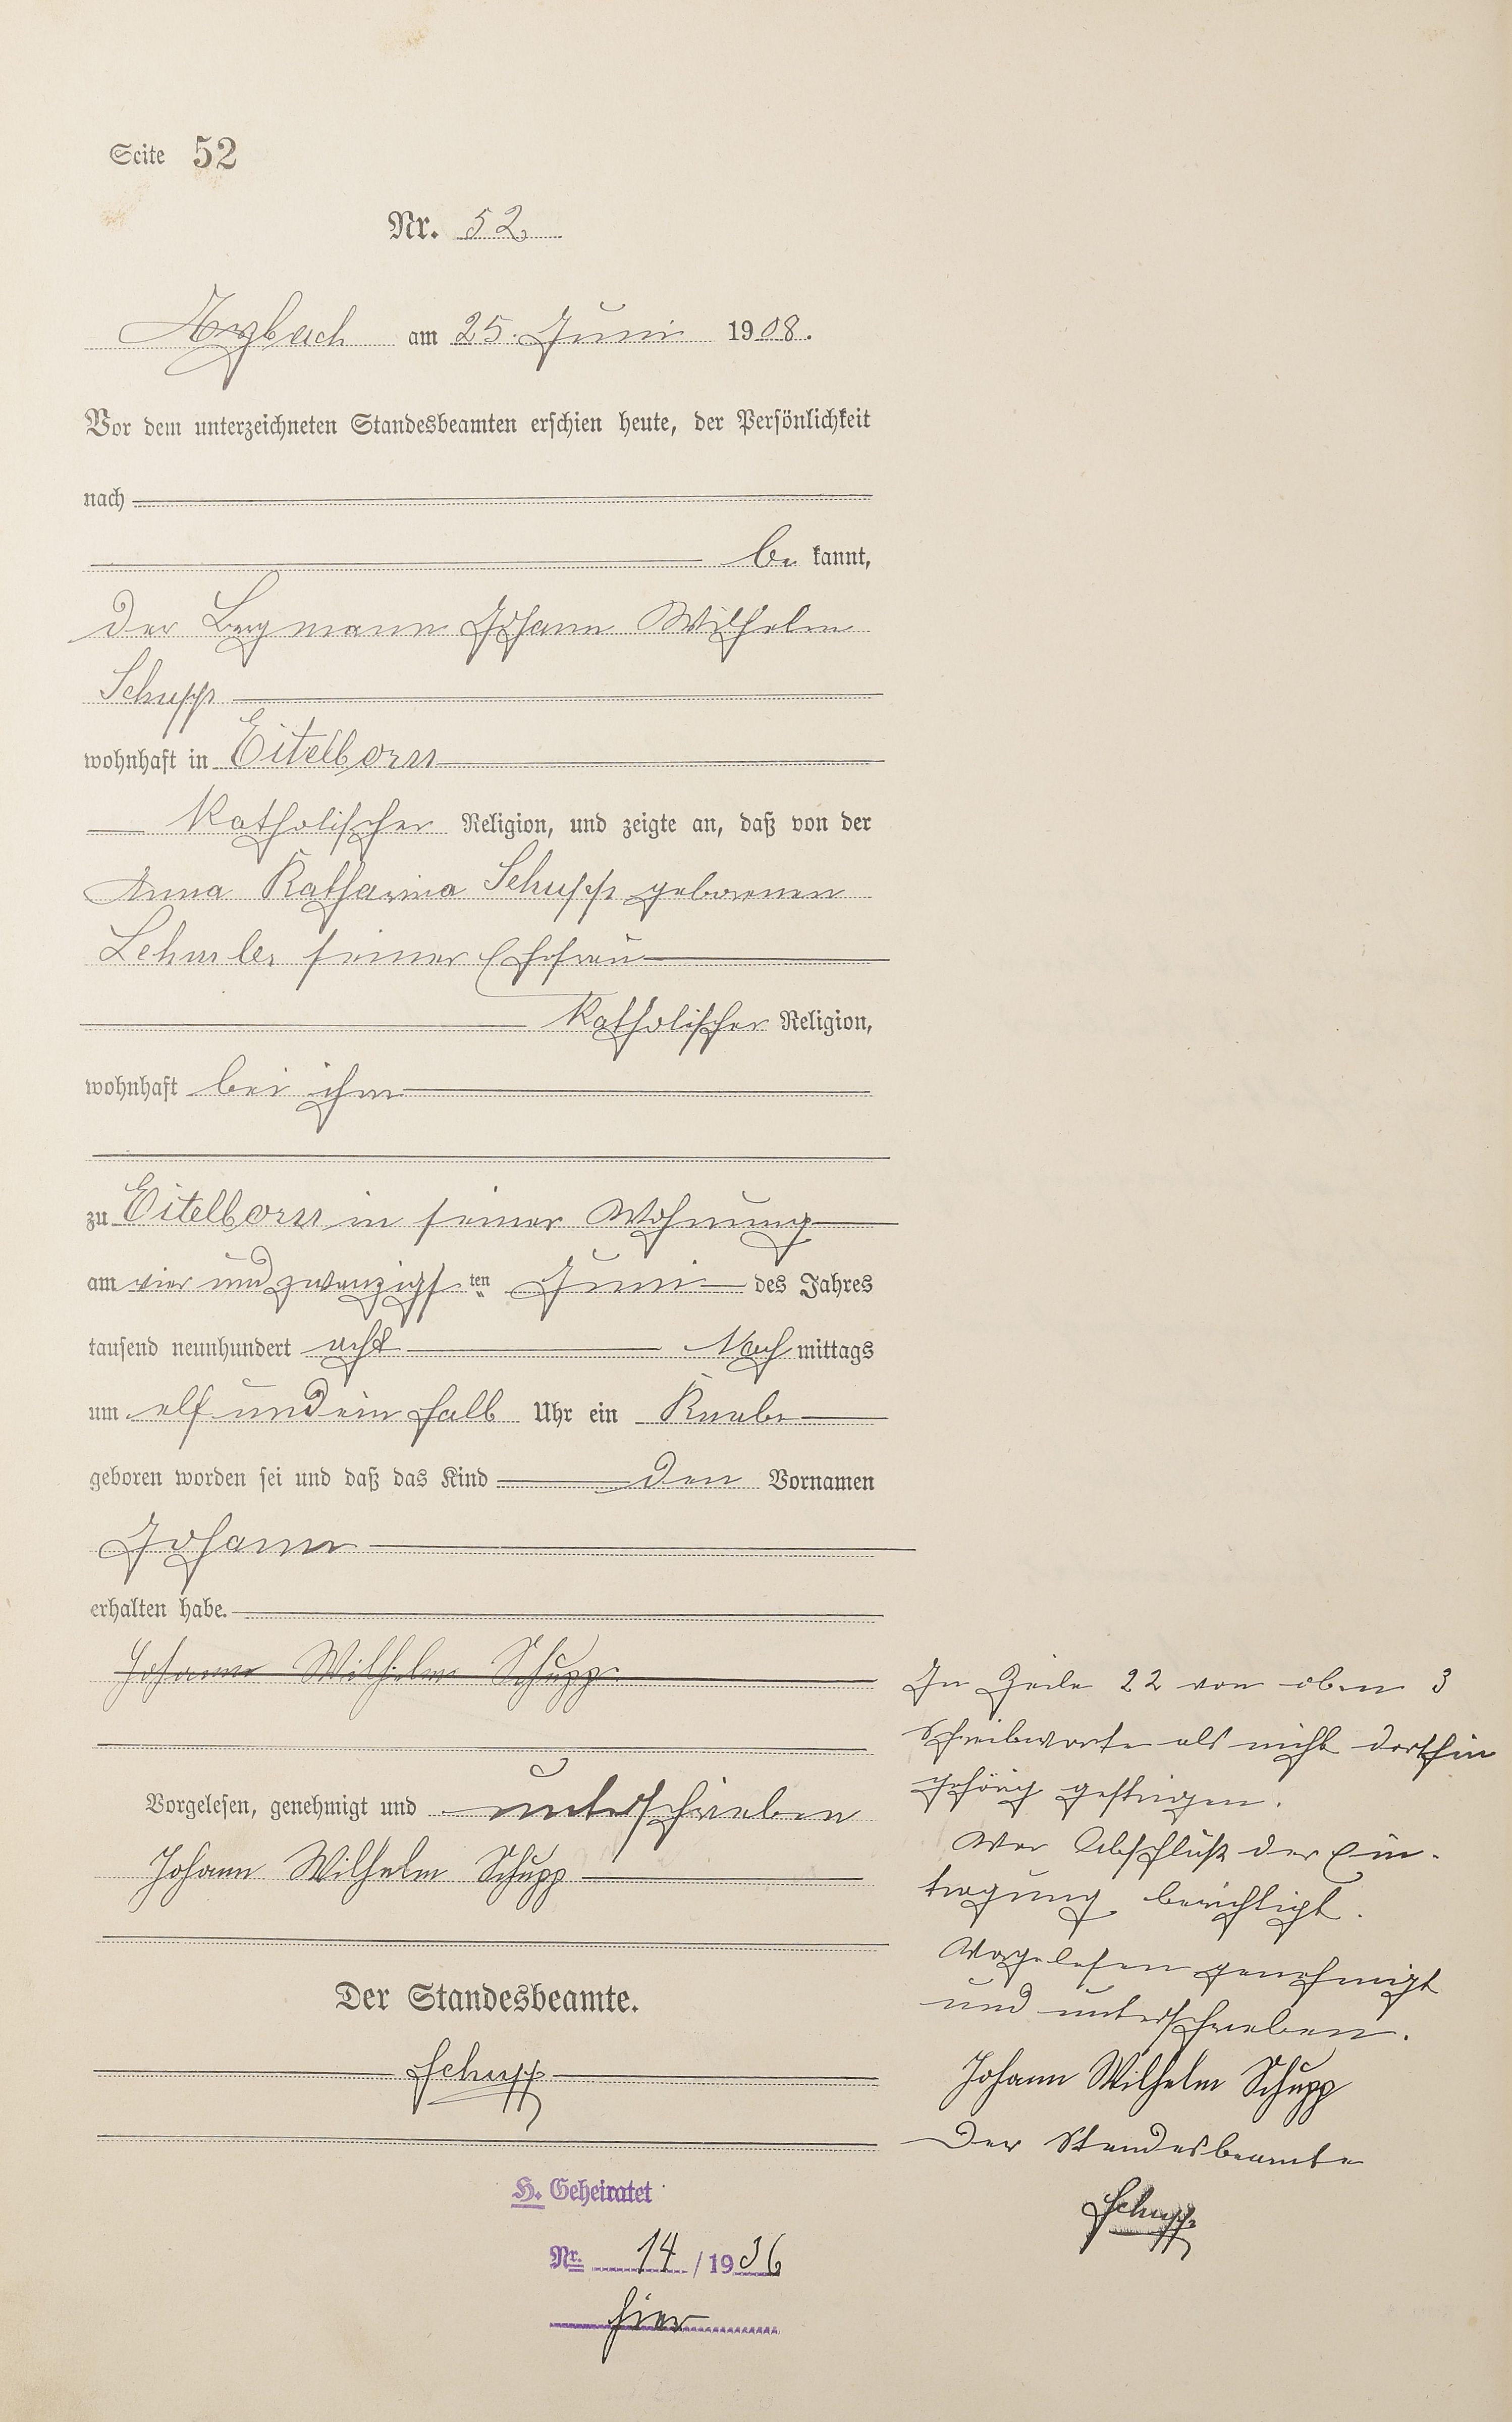 Seite 52
Nr. 52.
Arzbach am 25. Juni 1908.
Vor dem unterzeichneten Standesbeamten erschien heute, der Persönlichkeit
nach
be kannt,
der Bergmann Johann Wilhelm
Schupp
wohnhaft in Eitelborn
katholischer Religion, und zeigte an, daß von der
Anna Katharina Schupp geborenen
Lehmler seiner Ehefrau
katholischer Religion,
wohnhaft bei ihm
zu Eitelborn in seiner Wohnung
am vier und zwanzigs ten Juni des Jahres
tausend neunhundert acht Nach mittags
um elf und ein halb Uhr ein Knabe
geboren worden sei und daß das Kind den Vornamen
Johann
erhalten habe.
Johann Wilhelm Schupp
Vorgelesen, genehmigt und unterschrieben
Johann Wilhelm Schupp
Der Standesbeamte.
Schupp
H. Geheiratet
Nr. 14 / 1936
hier
In Zeile 22 von oben 3
Schreibworte als nicht dorthin
gehörig gestrigen.
Vor Abschluß der Ein-
tragung berichtigt.
Vorgelesen genehmigt
und unterschrieben.
Johann Wilhelm Schupp
Der Standesbeamte
Schupp